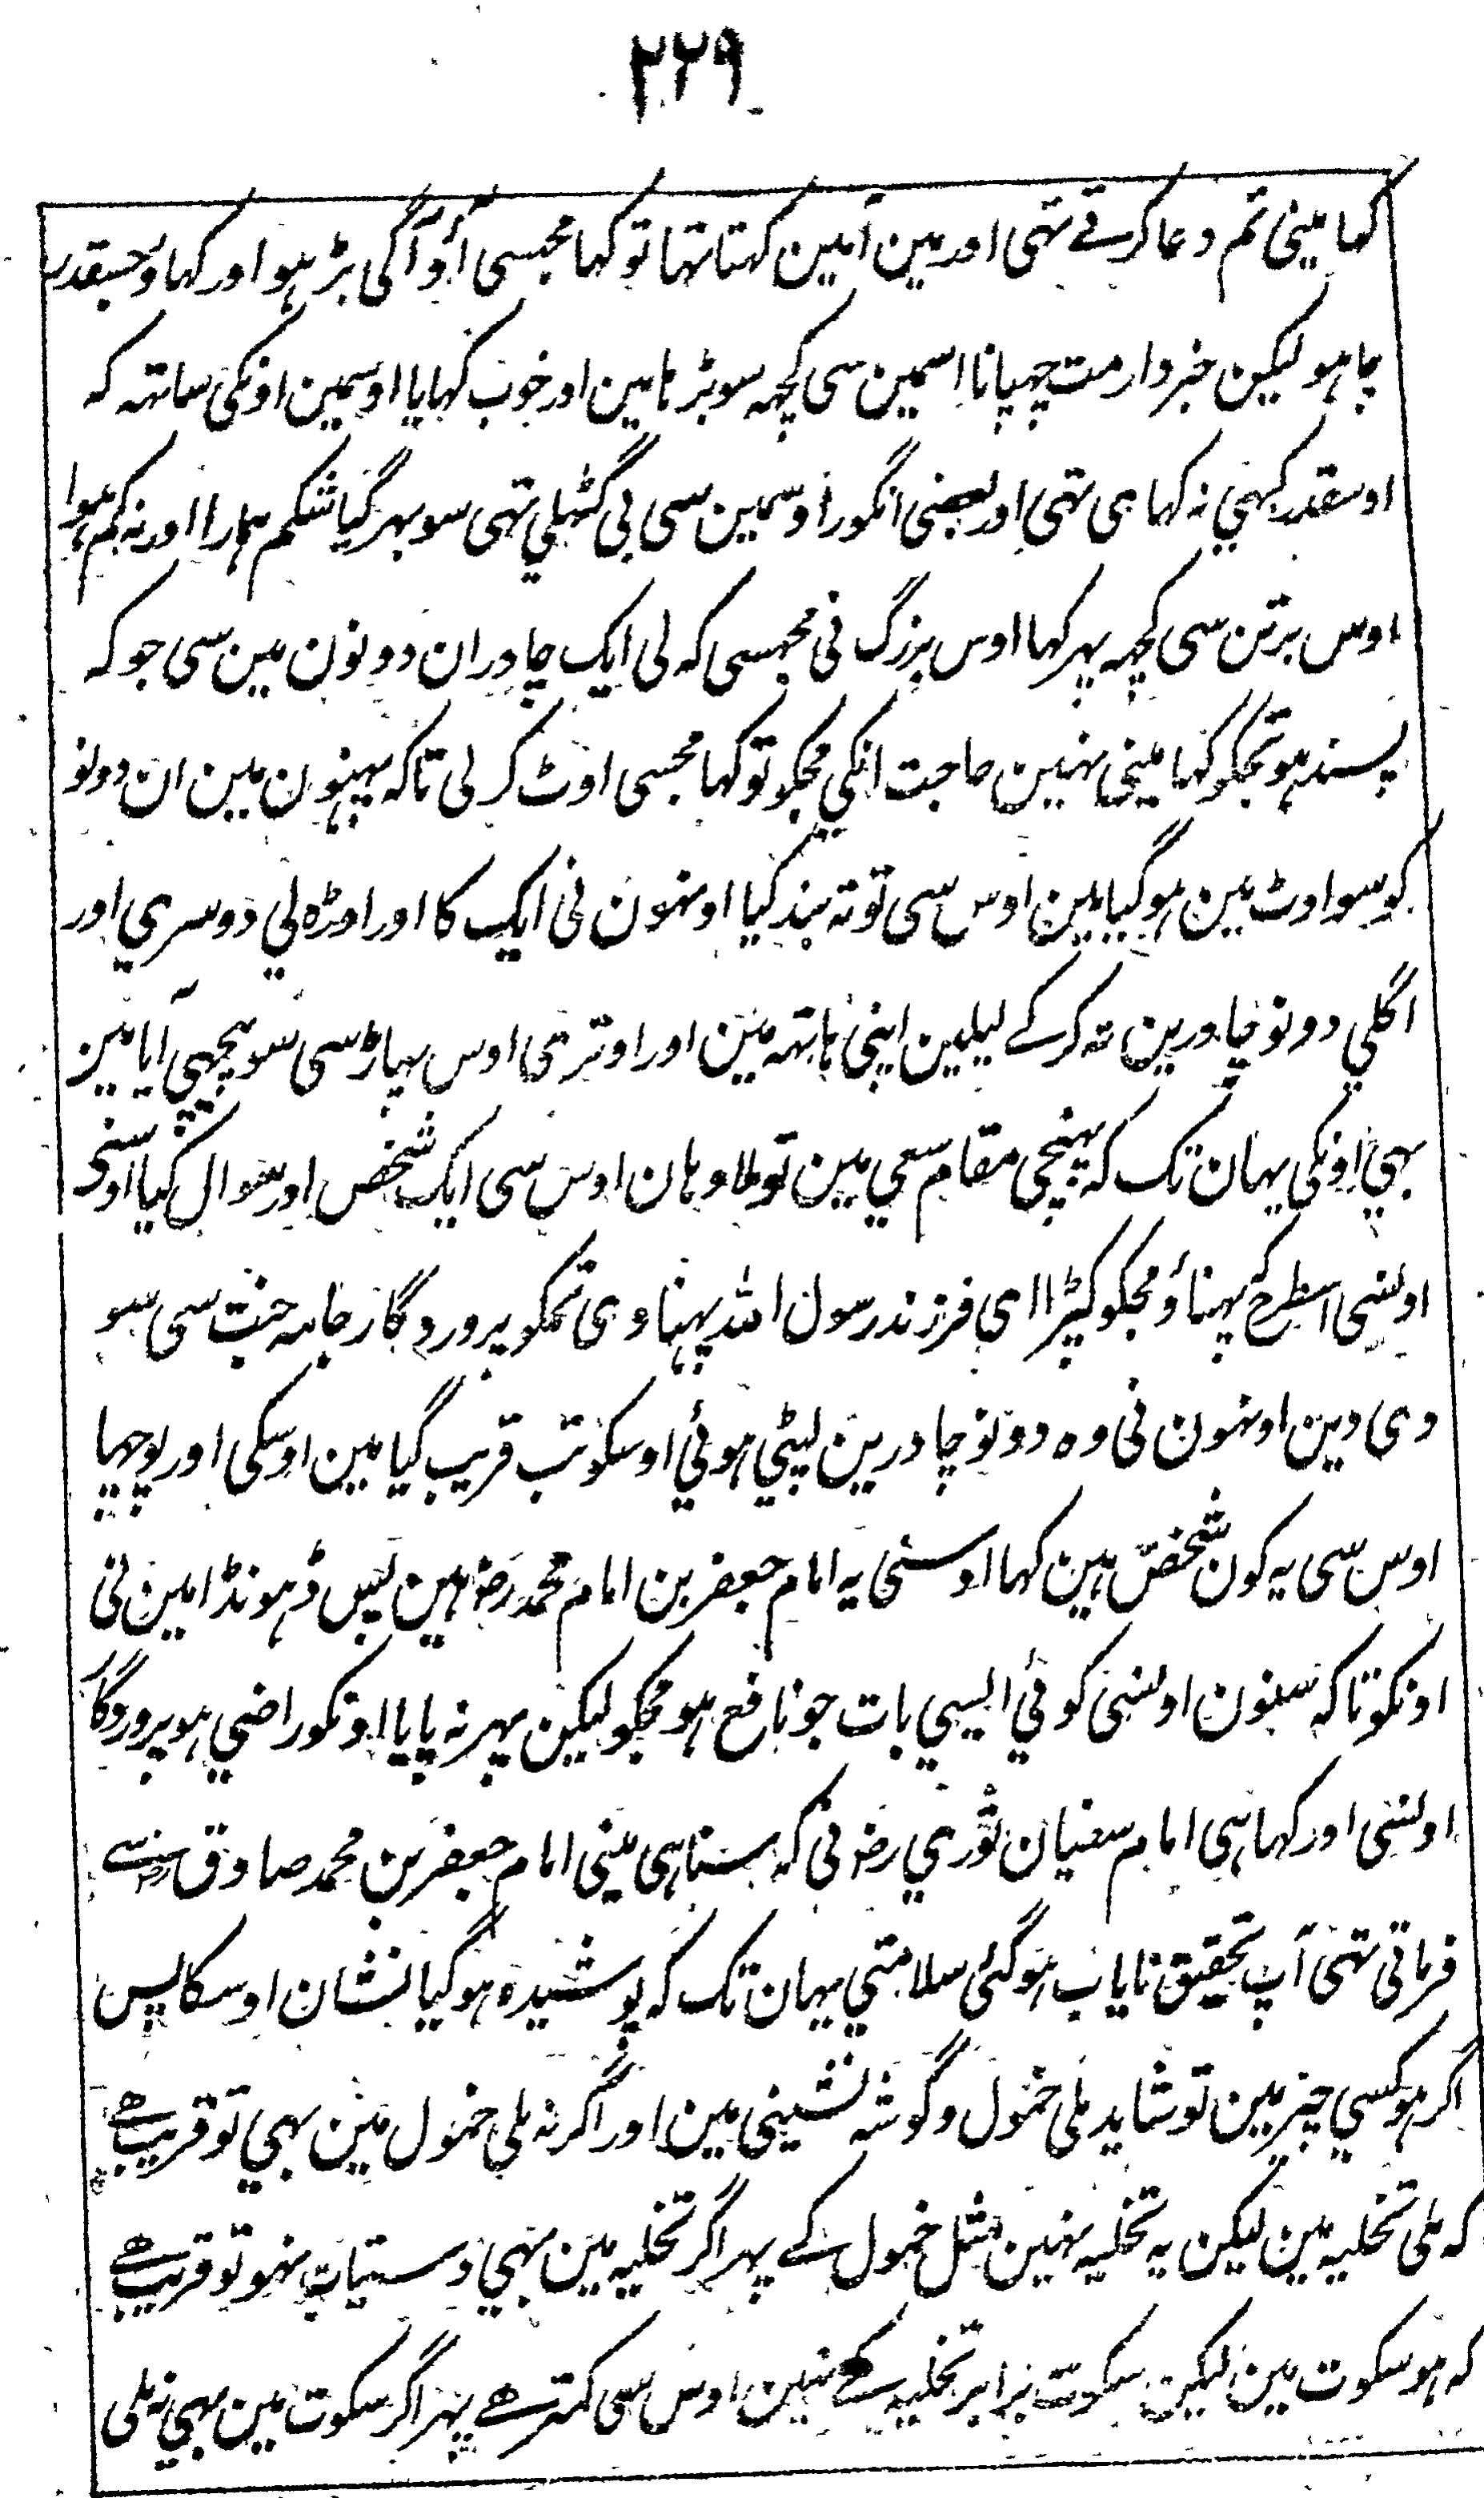 ۲۲۹
کہا مینی تم دعا کرتے تہی اور مین آمین کہتا تہا تو کہا مجہسی آؤ آگی بڑہو اور کہاو جسقدر
چاہو لیکن خبردار مت چہپانا اسمین سی کچہہ سو بڑہا مین اور خوب کہایا اوسمین اونکی ساتہہ کہ
اوسقدر کبہی نہ کہای تہی اور یعنی انگور اوسمین سی بی گٹہلی تہی سو بہر گیا شکم ہمارا اور نہ کم ہوا
اوس برتن سی کچہہ پہر کہا اوس بزرگ نی مجہسی کہ لی ایک چادر ان دونون مین سی جو کہ
پسند ہو تجکو کہا مینی نہین حاجت انکی مجکو تو کہا مجہسی اوٹ کر لی تاکہ پہنون مین ان دونو
کو سو اوٹ مین ہو گیا مین اوس سی تو تہ بند کیا اونہون نی ایک کا اور اوڑہ لی دوسری اور
اگلی دونو چادرین تہ کر کے لیلین اپنی ہاتہہ مین اور اوتری اوس پہاڑ سی سو پیچہی آیا مین
بہی اونکی یہان تک کہ پہنچی مقام سعی مین تو ملا وہان اوس سی ایک شخص اور سوال کیا اوسنی
اونسی اسطرح کہ پہناؤ مجکو کپڑا ای فرزند رسول اللہ پہناوی تمکو پروردگار جامہ جنت سی سو
دی دین اونہون نی وہ دونو چادرین لپٹی ہوئی اوسکو تب قریب گیا مین اوسکی اور پوچہا
اوس سی یہ کون شخص ہین کہا اوسنی یہ امام جعفر بن امام محمد رضہ ہین پس ڈہونڈا مین نی
اونکو تاکہ سنون اونسی کوئی ایسی بات جو نافع ہو مجکو لیکن پہر نہ پایا اونکو راضی ہو پروردگار
اونسی اور کہا ہی امام سفیان ثوری رضہ نی کہ سنا ہی مینی امام جعفر بن محمد صادق رضہ سے
فرماتی تہی آپ تحقیق نایاب ہو گئی سلامتی یہان تک کہ پوشیدہ ہو گیا نشان اوسکا پس
اگر ہو کسی چیز مین تو شاید ملی خمول و گوشہ نشینی مین اور اگر نہ ملی خمول مین بہی تو قریب ہے
کہ ملی تخلیہ مین لیکن یہ تخلیہ نہین مثل خمول کے پہر اگر تخلیہ مین بہی دستیاب نہو تو قریب ہے
کہ ہو سکوت مین لیکن سکوت برابر تخلیہ کے نہین اوس سی کمتر ہے پہر اگر سکوت مین بہی نہ ملی